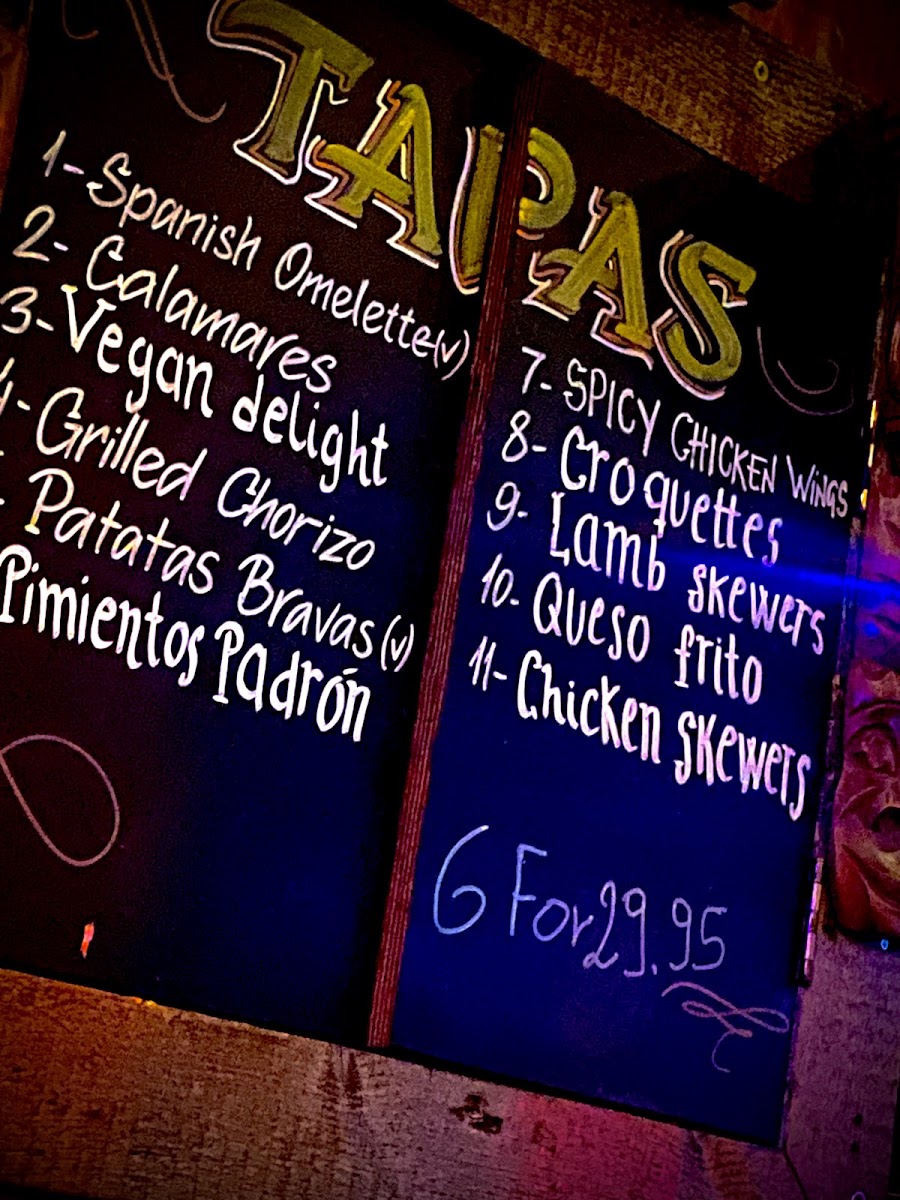 TAPAS
1- Spanish Omelette (v)
2- Calamares
3- Vegan delight
4- Grilled Chorizo
- Patatas Bravas (v)
Pimientos Padrón
7- SPICY CHICKEN WiNGS
8- Croquettes
9- Lamb skewers
10- Queso frito
11- Chicken skewers
6 For 29.95